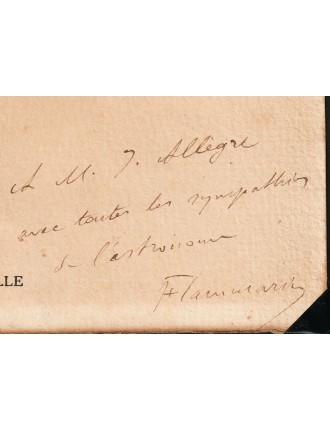 A M. J. Allègre
avec toutes les sympathies
de l'astronome
LLE
Flammarion